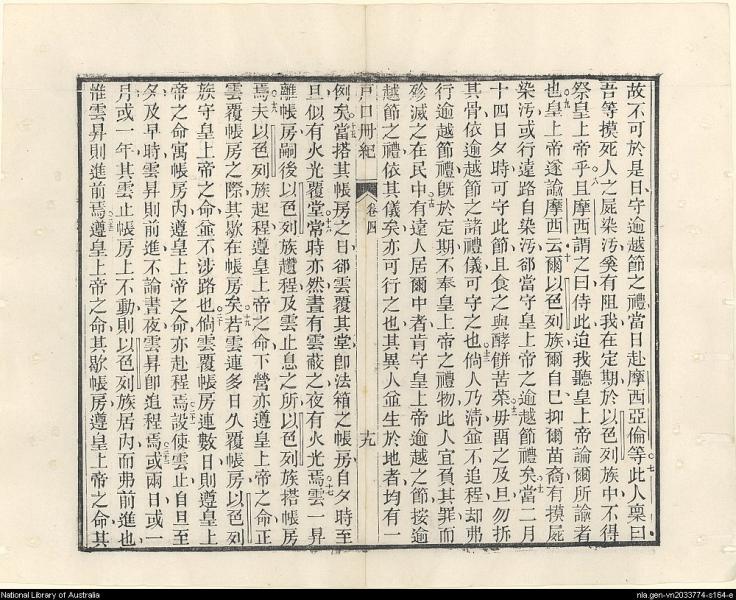 故不可於是日守逾越節之禮當日赴摩西亞倫等此人稟曰
吾等摸死人之屍染汚奚有阻我在定期於以色列族中不得
祭皇上帝乎且摩西謂之曰侍此迨我聽皇上帝論爾所諭者
也皇上帝遂諭摩西云爾以色列族爾自己抑爾苗裔有摸屍
染汚或行遠路自染汚郤當守皇上帝之逾越節禮矣當二月
十四日夕時可守此節且食之與酵餅苦菜毋畱之及旦勿拆
其骨依逾越節之諸禮儀可守之也倘人乃清並不追程却弗
行逾越節禮旣於定期不奉皇上帝之禮物此人宜負其罪而
殄滅之在民中有遠人居爾中者肯守皇上帝逾越之節按逾
越節之禮依其儀矣亦可行之也其異人並生於地者均有一
戶口册紀
卷四
十九
例矣當搭其帳房之日郤雲覆其堂卽法箱之帳房自夕時至
旦似有火光覆堂常時亦然晝有雲蔽之夜有火光焉雲一昇
離帳房嗣後以色列族趲程及雲止息之所以色列族搭帳房
焉夫以色列族起程遵皇上帝之命下營亦遵皇上帝之命正
雲覆帳房之際其歇在帳房矣若雲連多日久覆帳房以色列
族守皇上帝之命並不涉路也倘雲覆帳房連數日則遵皇上
帝之命寓帳房內遵皇上帝之命亦赴程焉設使雲止自旦至
夕及早時雲昇則前進不論晝夜雲昇卽追程焉或兩日或一
月或一年其雲止帳房上不動則以色列族居內而弗前進也
惟雲昇則進前焉遵皇上帝之命其歇帳房遵皇上帝之命其
National Library of Australia
nla.gen-vn2033774-s164-e